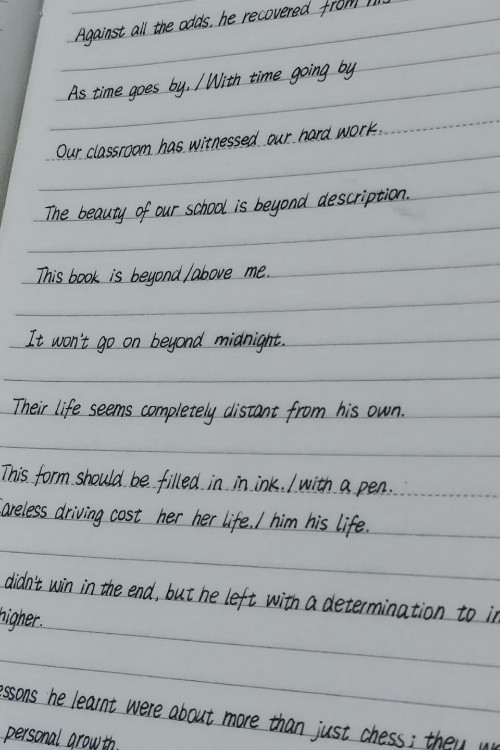 Against all the odds, he recovered from his
As time goes by. / With time going by
Our classroom has witnessed our hard work.
The beauty of our school is beyond description.
This book is beyond/above me.
It won't go on beyond midnight.
Their life seems completely distant from his own.
This form should be filled in in ink. / with a pen.
Careless driving cost her her life. / him his life.
didn't win in the end, but he left with a determination to
higher.
he learnt were about more than just chess; they
personal growth.